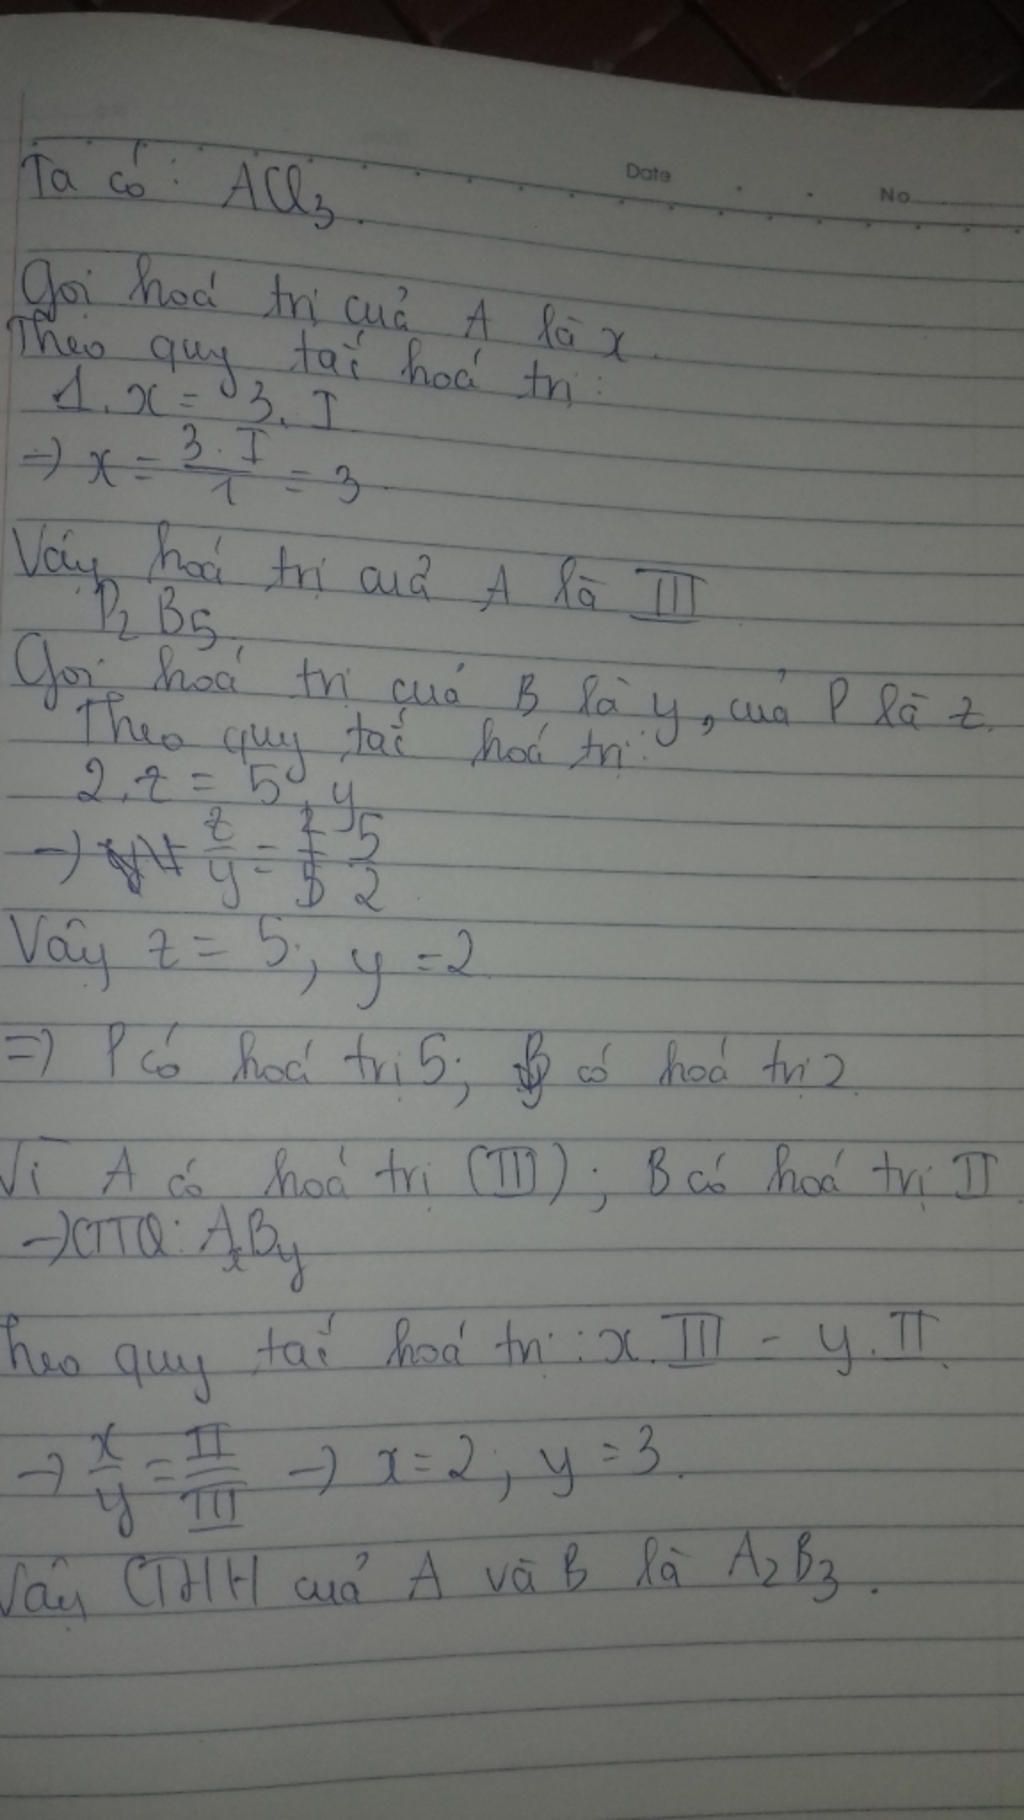 Date
No
Ta có: ACl3.
Gọi hoá trị của A là x.
Theo quy tắc hoá trị:
1.x = 3.I
→ x = 3.I/1 = 3
Vậy hoá trị của A là III
P2B5.
Gọi hoá trị của B là y, của P là z.
Theo quy tắc hoá trị:
2.z = 5.y
→ z/y = 5/2
Vậy z = 5; y = 2.
=> P có hoá trị 5; B có hoá trị 2
Vì A có hoá trị (III); B có hoá trị II.
→ CTTQ: AxBy
heo quy tắc hoá trị: x.III = y.II.
→ x/y = II/III → x = 2; y = 3.
Vậy CTHH của A và B là A2B3.